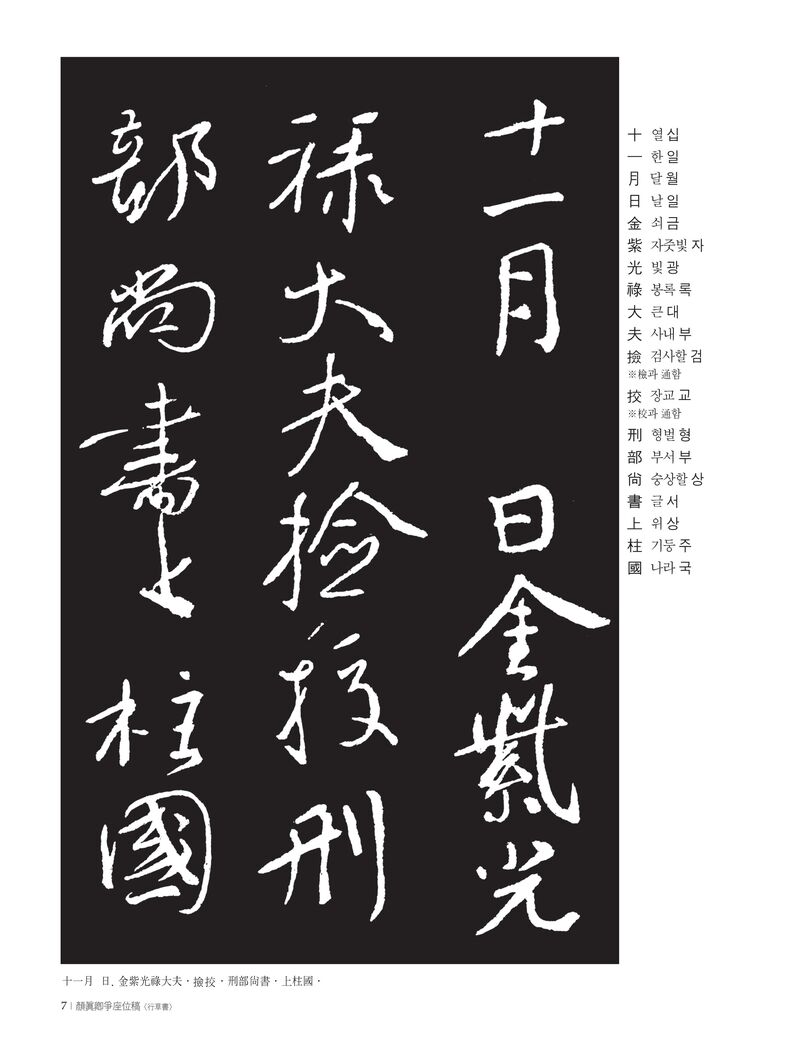 十一月 日金紫光
祿大夫撿挍刑
部尙書上柱國
十 열 십
一 한 일
月 달 월
日 날 일
金 쇠 금
紫 자줏빛 자
光 빛 광
祿 봉록 록
大 큰 대
夫 사내 부
撿 검사할 검
※檢과 通함
挍 장교 교
※校과 通함
刑 형벌 형
部 부서 부
尙 숭상할 상
書 글 서
上 위 상
柱 기둥 주
國 나라 국
十一月 日. 金紫光祿大夫·撿挍·刑部尙書·上柱國·
7 | 顔眞卿爭座位稿〈行草書〉